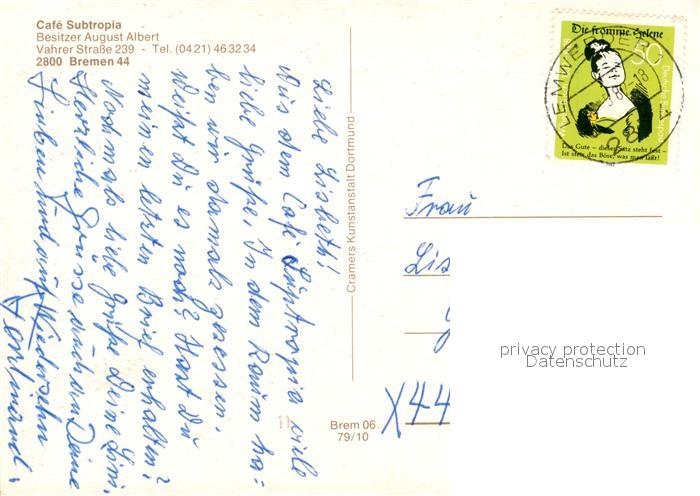 Café Subtropia
Besitzer August Albert
Vahrer Straße 239 - Tel. (04 21) 46 32 34
2800 Bremen 44
Liebe Lisbeth!
Aus dem Café Subtropia viele
liebe Grüße, In dem Raum ha=
ben wir damals gesessen,
Weißt Du es noch? Hast Du
meinen letzten Brief erhalten?
Nochmals liebe Grüße Deine
Herzliche Grüsse auch an Deine
Lieben und auf Wiedersehn
Cramers Kunstanstalt Dortmund
11
Brem 06
79/10
Die fromme Helene
50
Deutsche Bundespost
Das Gute – dieser Satz steht fest –
Ist stets das Böse, was man läßt!
LEMWERDER
Frau
Lis
X44
privacy protection
Datenschutz